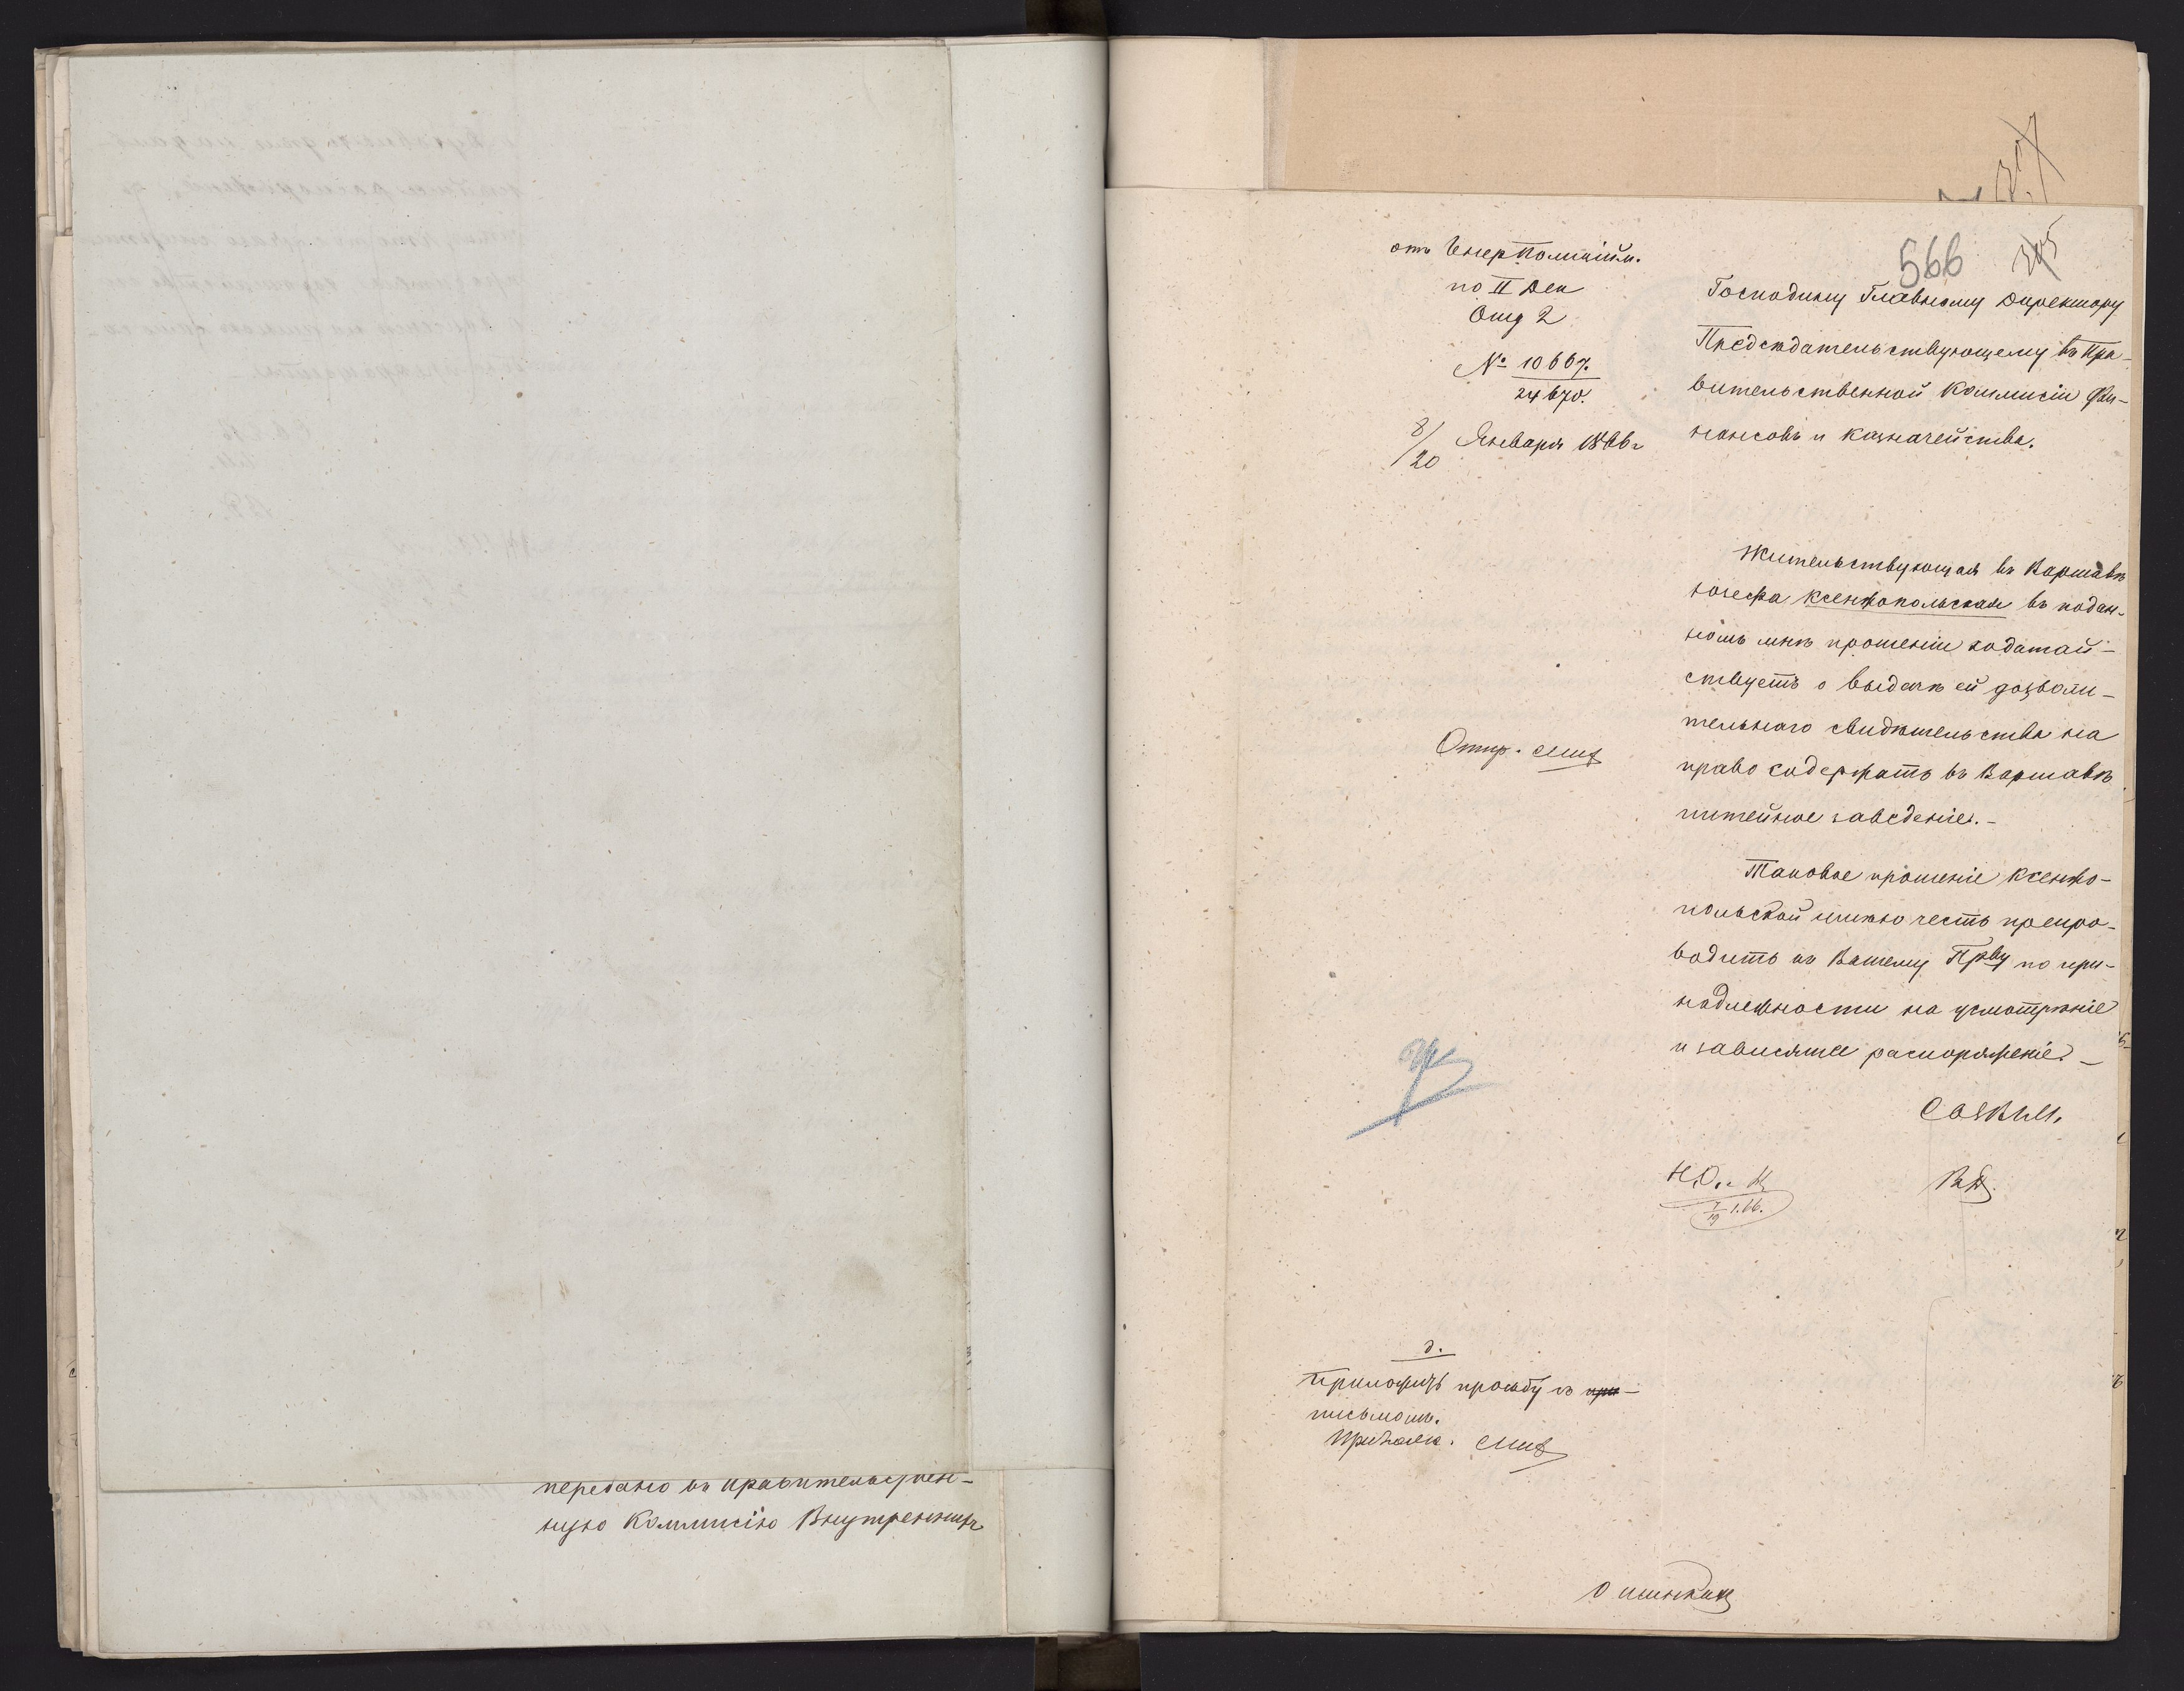 передано въ правительствен-
ную Коммисію Внутреннихъ
566
345
отъ Генерполицiйм.
по II Деп
Отд 2
№ 10667.
24670.
8/20 Января 1866 г
Господину Главному Директору
Предсѣдательствующему въ Пра-
вительственной Коммисіи Фи-
нансовъ и Казначейства.
Жительствующая въ Варшавѣ
Юзефа Ксенжопольская въ подан-
номъ мнѣ прошеніи ходатай-
ствуетъ о выдачѣ ей дозволи-
тельнаго свидѣтельства на
право содержать въ Варшавѣ
питейное заведеніе.-
Таковое прошеніе Ксенжо-
польской имѣю честь препро-
водить къ Вашему Прву по при-
надлежности на усмотрѣніе
и зависящее распоряженіе. -
Отпр.
7/19 1.66.
д.
Приложить прозьбу съ при-
письмомъ.